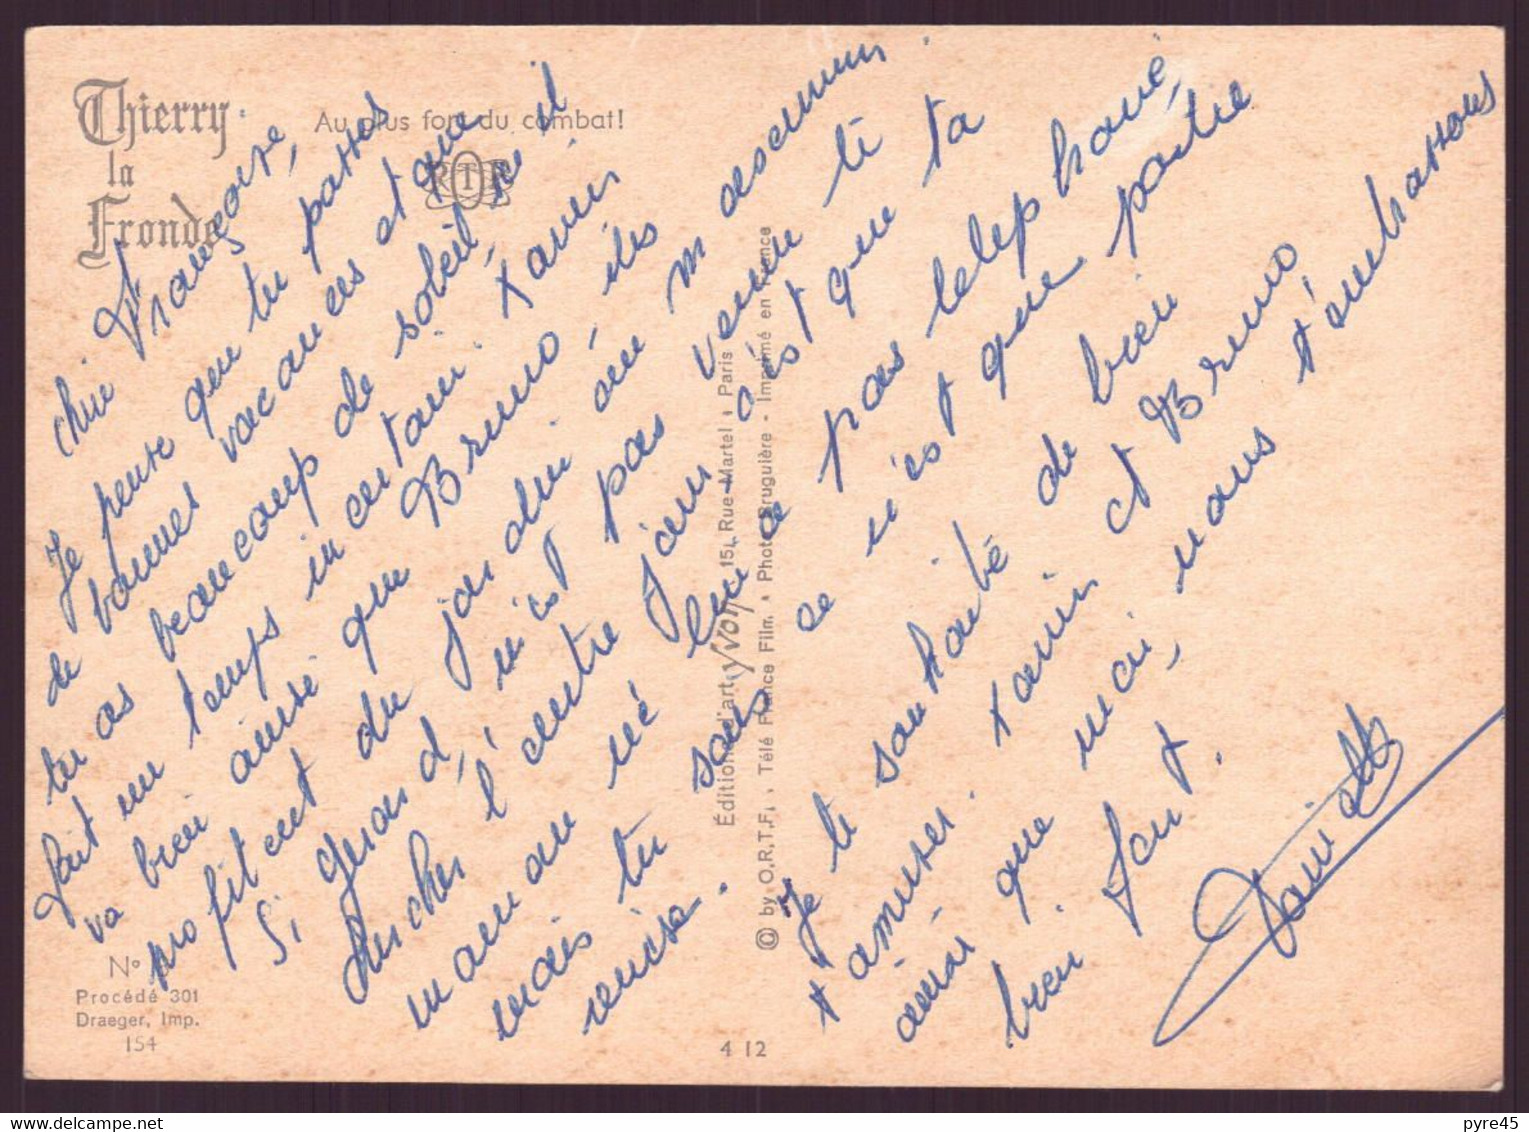 Thierry
la
Fronde
Au plus fort du combat!
ORTF
Françoise,
Je pense que tu passes de
bonnes vacances et que
tu as beaucoup de soleil, ici il
fait un temps
va bien ainsi que Bruno, ils
profitent du jardin
Si grand' n'est pas venu te
chercher l'autre jour c'est que ta
maman ne lui a pas téléphoné,
mais tu sais ce n'est que partie
remise.
Je te souhaite de bien
t'amuser. Xavier et Bruno
ainsi que moi, nous t'embrassons
bien fort.
Éditions d'art YVON, 15, Rue Martel, Paris
© by O.R.T.F., Télé France Film. Photo Bruguière - Imprimé en France
N°
Procédé 301
Draeger, Imp.
154
4 12
pyre45